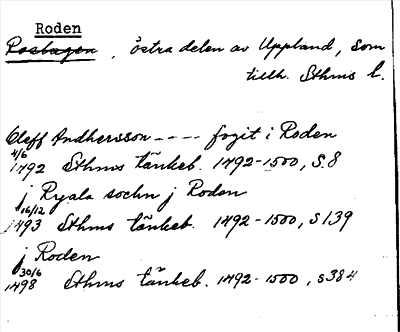 Roden
Roslagen, östra delen av Uppland, som
tillh. Sthms l.
Oleff Andhersson - - - - fogit i Roden
4/6
1492 Sthms tänkeb. 1492-1500, S.8
j Ryala sochn j Roden
16/12
1493 Sthms tänkeb. 1492-1500, S139
j Roden
30/6
1498 Sthms tänkeb. 1492-1500, s384